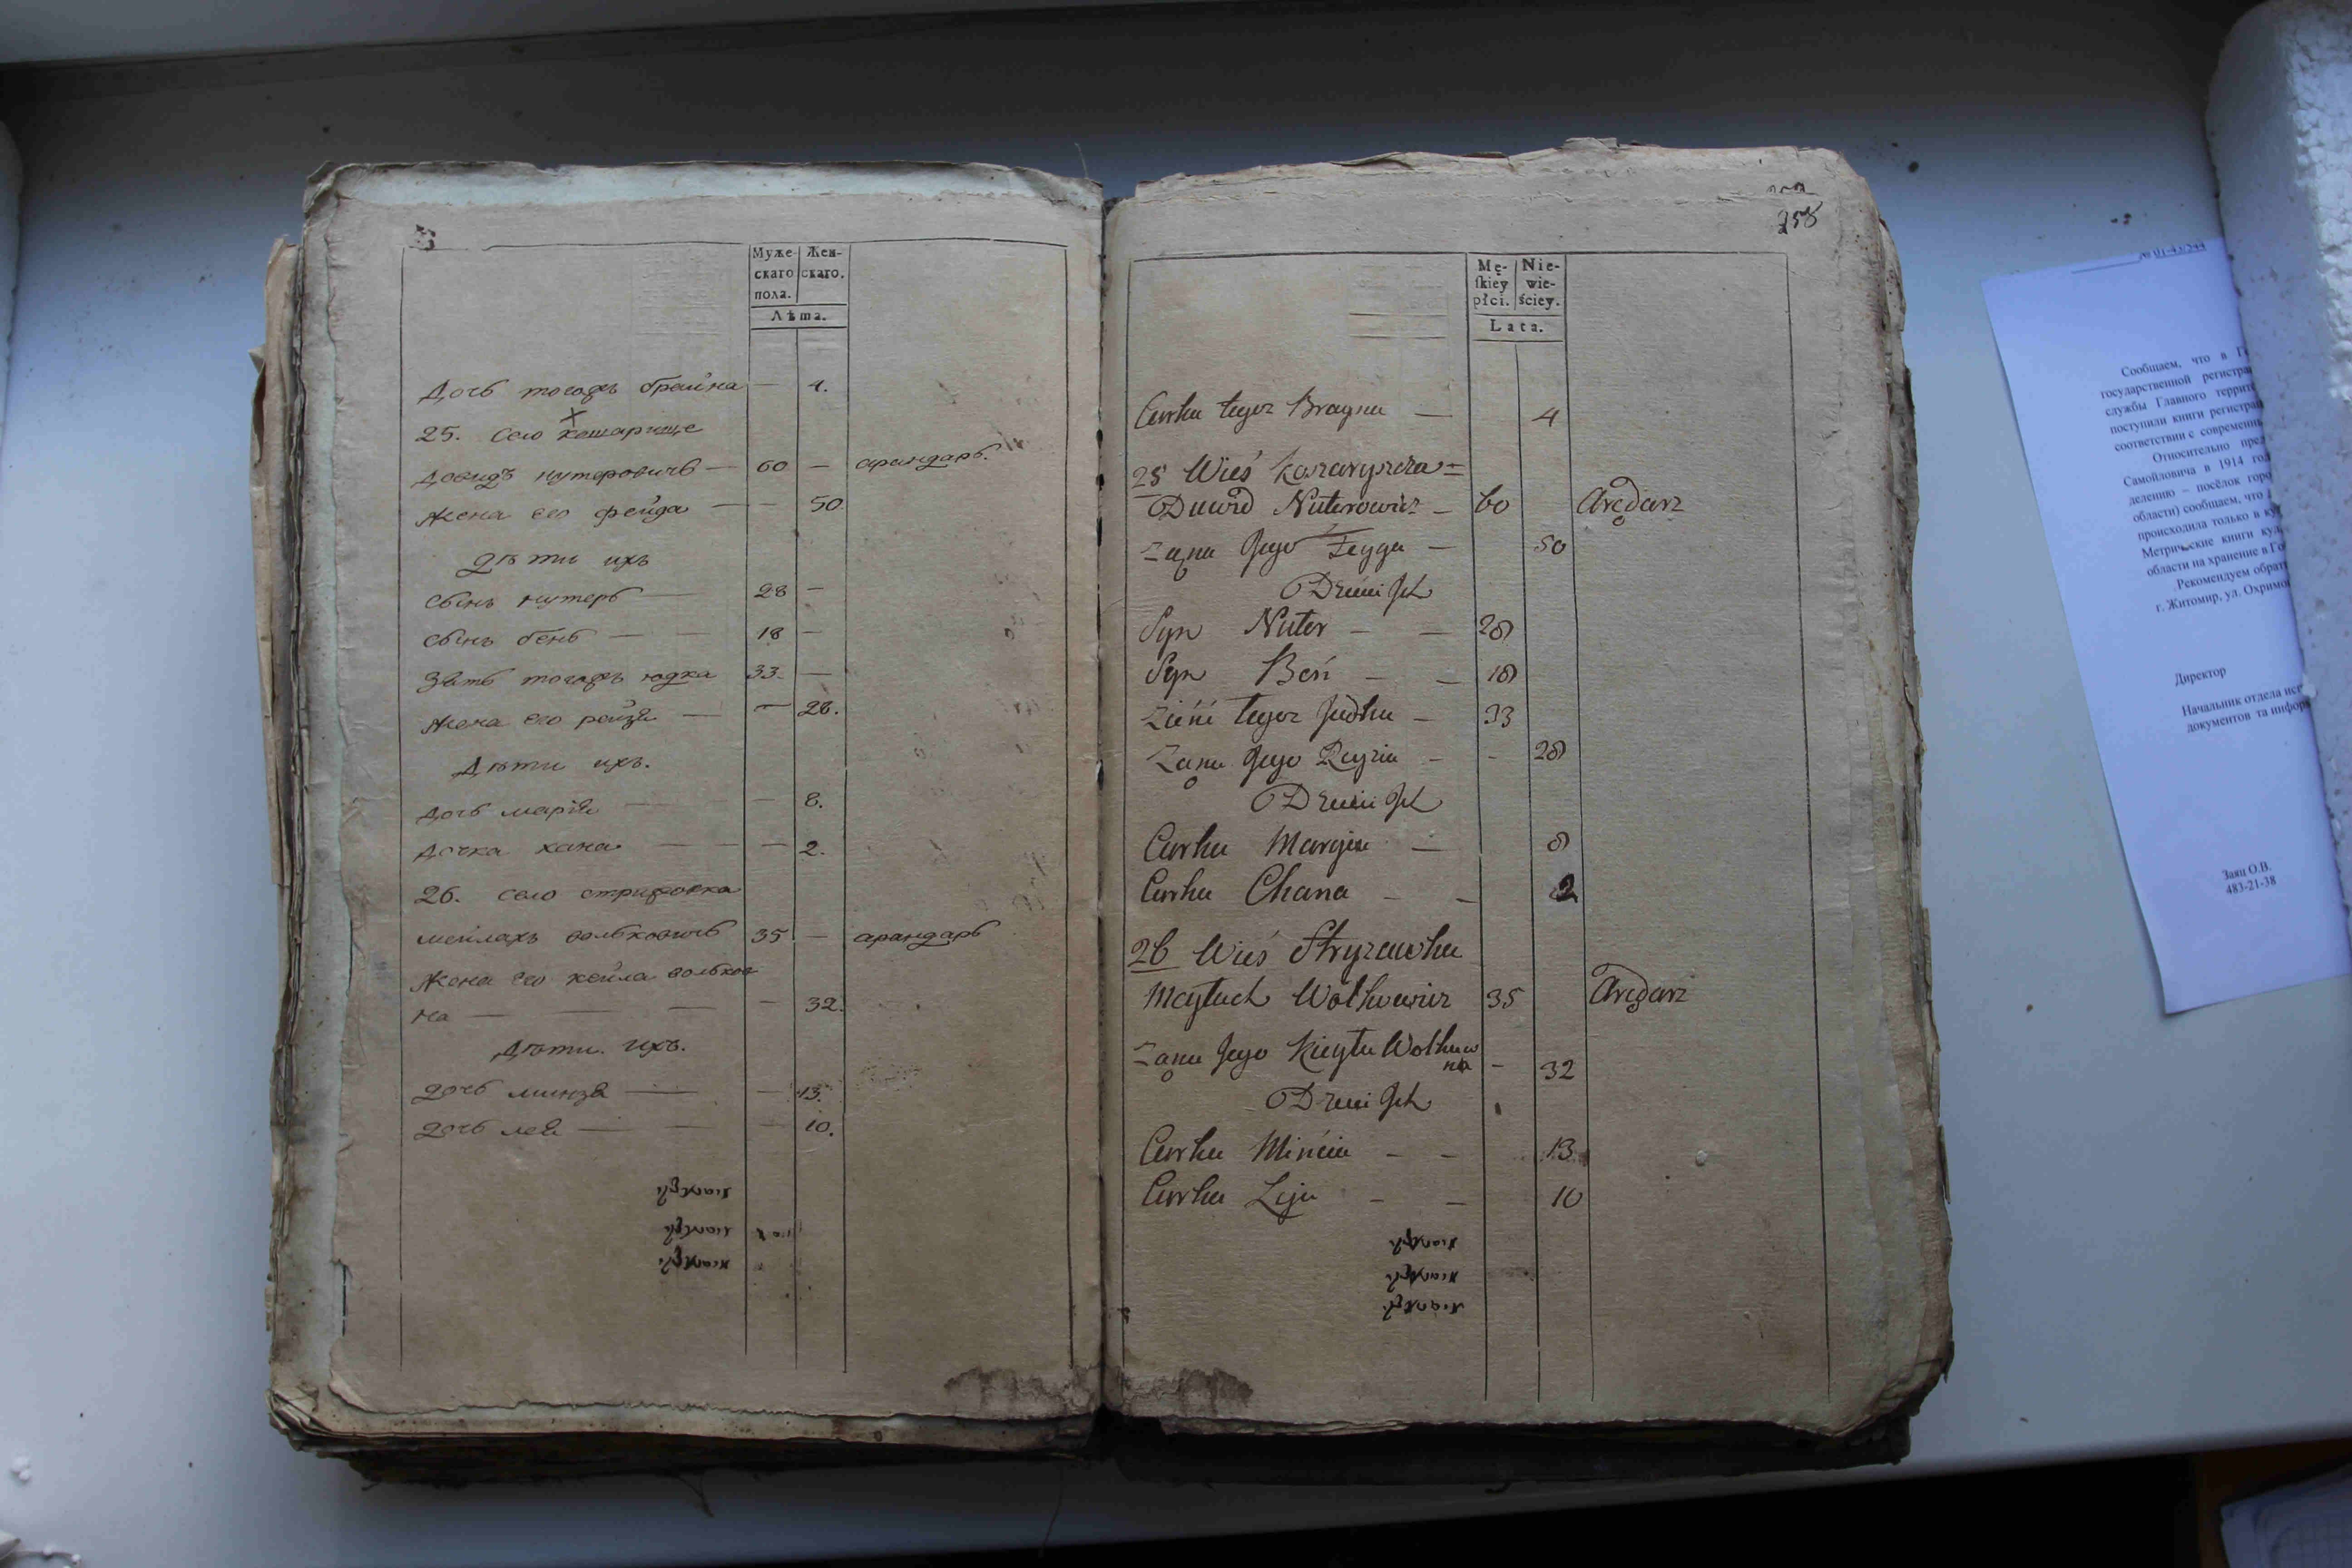 Муже-
скаго
пола.
Жен-
скаго.
Лѣта.
Дочь тогожъ брайна — 4.
25. Село кошарище
довидъ нутеровичъ — 60 — арандарь.
жена его фейга — — 50.
дѣти ихъ
сынъ нутеръ — 28 —
сынъ бень — — 18 —
Зять тогожъ юдка 33. —
жена его рейзя — — 28.
Дѣти ихъ.
дочь марія — — 8.
дочка хана — — — 2.
26. село стрижовка
мейлахъ вольковичъ 35 — арандарь
Жена его кейла волков
на — — — — 32.
Дѣти ихъ.
дочь минзя — — 13.
дочь лея — — — 10.
258
Mę-
skiey
płci.
Nie-
wie-
ściey.
Lata.
Curka tegoz Brayna — 4
25 Wieś Koszaryszcza =
Dawid Nuterowicz — 60 Arędarz
Zona Jego Feyga — 50
Dzieci Jch
Syn Nuter — — 28
Syn Beń — — 18
Zięć tegoz Judka — 33
Zona Jego Reyzia — - 28
Dzieci Jch
Curka Maryia — 8
Curka Chana — — 2
26 Wieś Stryzawka
Meyłach Wolkowicz 35 Arędarz
Zona Jego Kieyła Wolkow
na - 32
Dzieci Jch
Curka Mińcia — — 13
Curka Leja — — 10
№ 01-43/544
Сообщаем, что в Г
государственной регистра
службы Главного террит
поступили книги регистра
соответствии с современн
Относительно пред
Самойловича в 1914 год
делению – посёлок горо
области) сообщаем, что
происходила только в ку
Метрические книги кул
области на хранение в Го
Рекомендуем обрат
г. Житомир, ул. Охримо
Директор
Начальник отдела исп
документов та инфор
Заяц О.В.
483-21-38